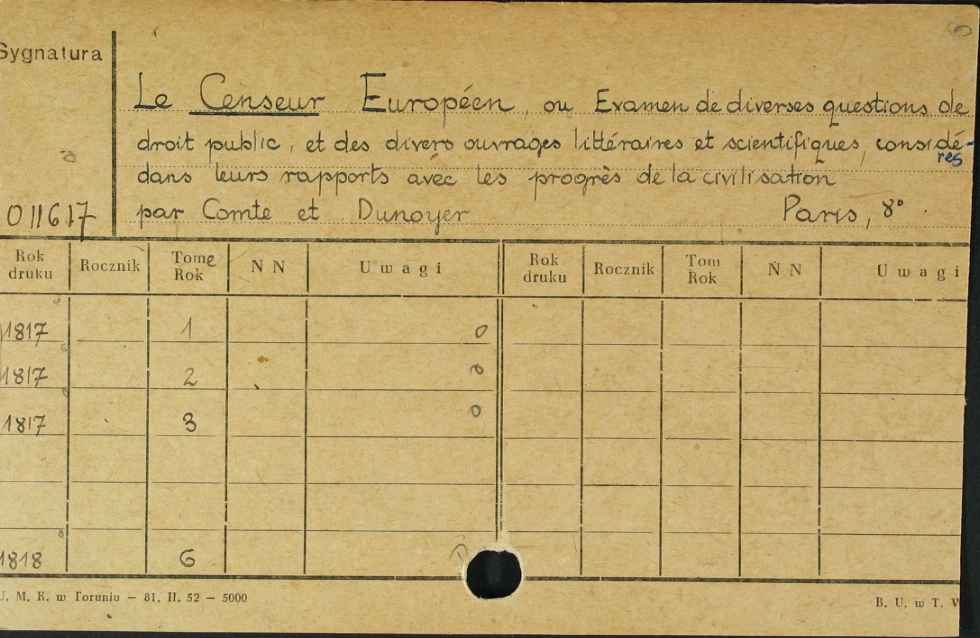 Sygnatura
Le Censeur Européen, ou Examen de diverses questions de
droit public, et des divers ouvrages littéraires et scientifiques, considé-
rés
dans leurs rapports avec les progrès de la civilisation
011617 par Comte et Dunoyer Paris, 8°
Rok druku Rocznik Tome Rok N N Uwagi Rok druku Rocznik Tom Rok N N Uwagi
1817 1 0
1817 2 0
1817 3 0
1818 6
U. M. K. w Toruniu — 81. H. 52 — 5000 B. U. w T.